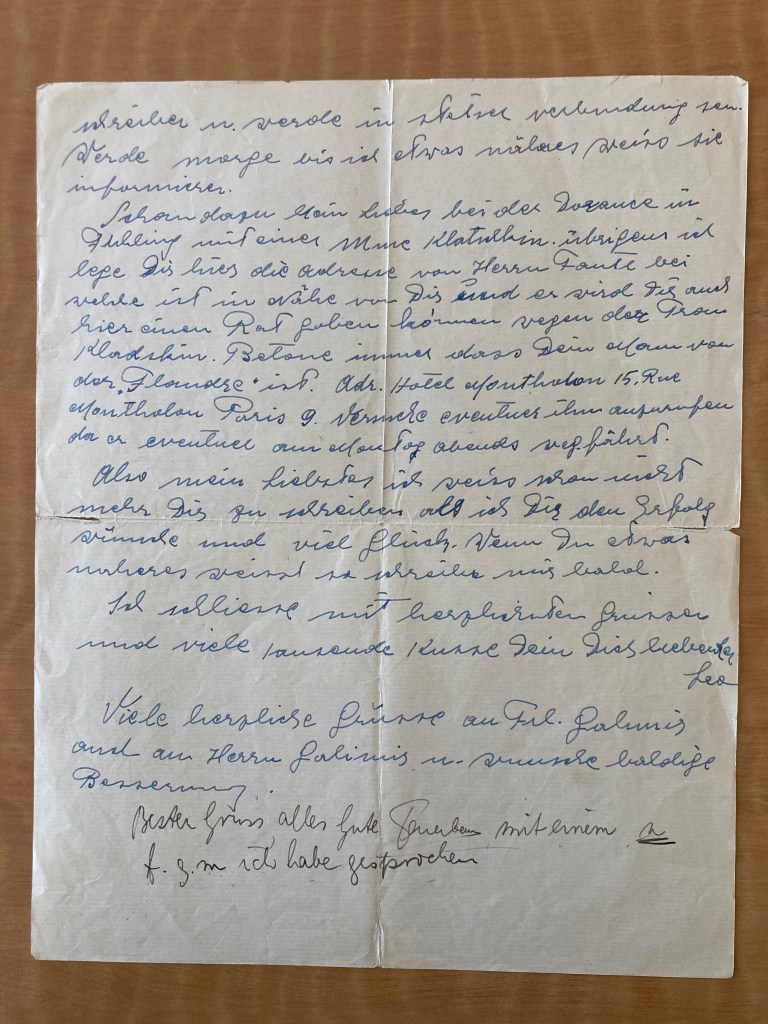 schreiben u. werde in steter verbindung sein.
Werde morge bis ich etwas näheres weiss sie
informieren.
Schau dazu Mein Liebes bei der Dorance in
Fühling mit einer Mme Klatschkin. übrigens ich
lege Dir hier die Adresse von Herrn Fantl bei
welche ist in Nähe von Dir und er wird Dir auch
hier einen Rat geben können wegen der Frau
Kladskin. Betone immer dass Dein Mann von
der "Flandre" ist. Adr. Hotel Montholon 15, Rue
Montholon Paris 9. Versuche eventuel ihm anzurufen
da er eventuel am Montag abends wegfährt.
Also mein Liebstes ich weiss schon nicht
mehr Dir zu schreiben als ich Dir den Erfolg
wünsche und viel Glück. Wenn Du etwas
naheres weisst so schreibe mir bald.
Ich schliesse mit herzlichsten Grüssen
und viele tausende Küsse Dein Dich liebender
Leo
Viele herzliche Grüsse an Frl. Galinis
und an Herrn Galinis u. wünsche baldige
Besserung.
Bester Gruss alles Gute mit einem n
f. g. m ich habe gesprochen